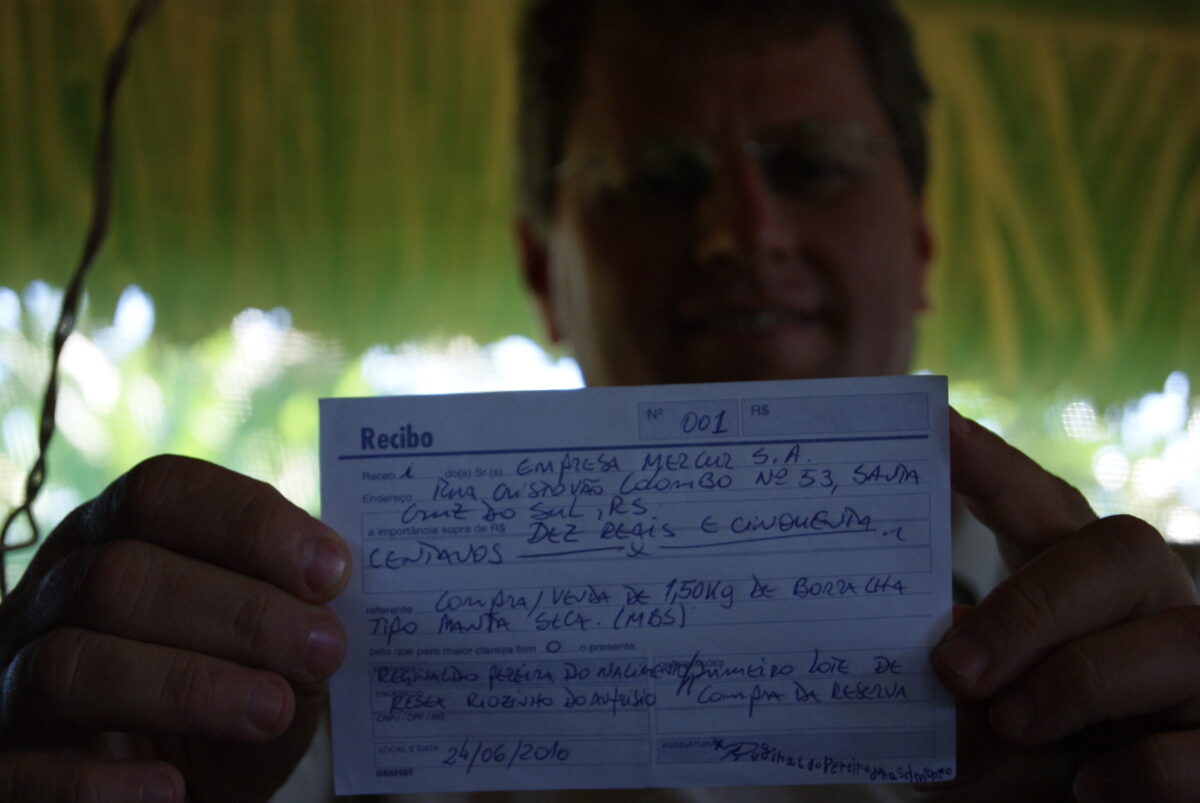 Nº 001 R$
Recibo
Recebi do(s) Sr.(s) EMPRESA MERCUR S.A.
Endereço RUA CRISTOVÃO COLOMBO Nº 53, SANTA
CRUZ DO SUL, RS.
a importância supra de R$ DEZ REAIS E CINQUENTA
CENTAVOS
referente COMPRA/VENDA DE 1,50Kg DE BORRACHA
TIPO MANTA SECA. (MBS)
pelo que para maior clareza firm O o presente.
REGINALDO PEREIRA DO NASCIMENTO PRIMEIRO LOTE DE
RESEX RIOZINHO DO ANFRISIO COMPRA DA RESERVA
CNPJ / CPF / RG
LOCAL E DATA 24/06/2010 ASSINATURA Reginaldo Pereira do nascimento
GRAFSET